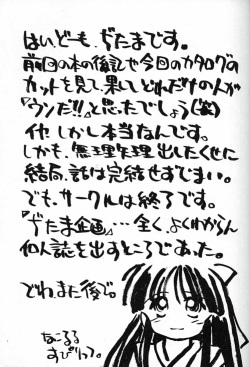 はい、ども、ぢたまです。
前回の本の後記や今回のカタログの
カットを見て、果してどれだけの人が
『ウソだ!!』と思ったでしょう(笑)
イヤ、しかし本当なんです。
しかも、無理矢理出したくせに
結局、話は完結せずじまい。
でも、サークルは終了です。
『ぢたま企画』…全く、よくわからん
同人誌を出すところであった。
でわ、また後で。